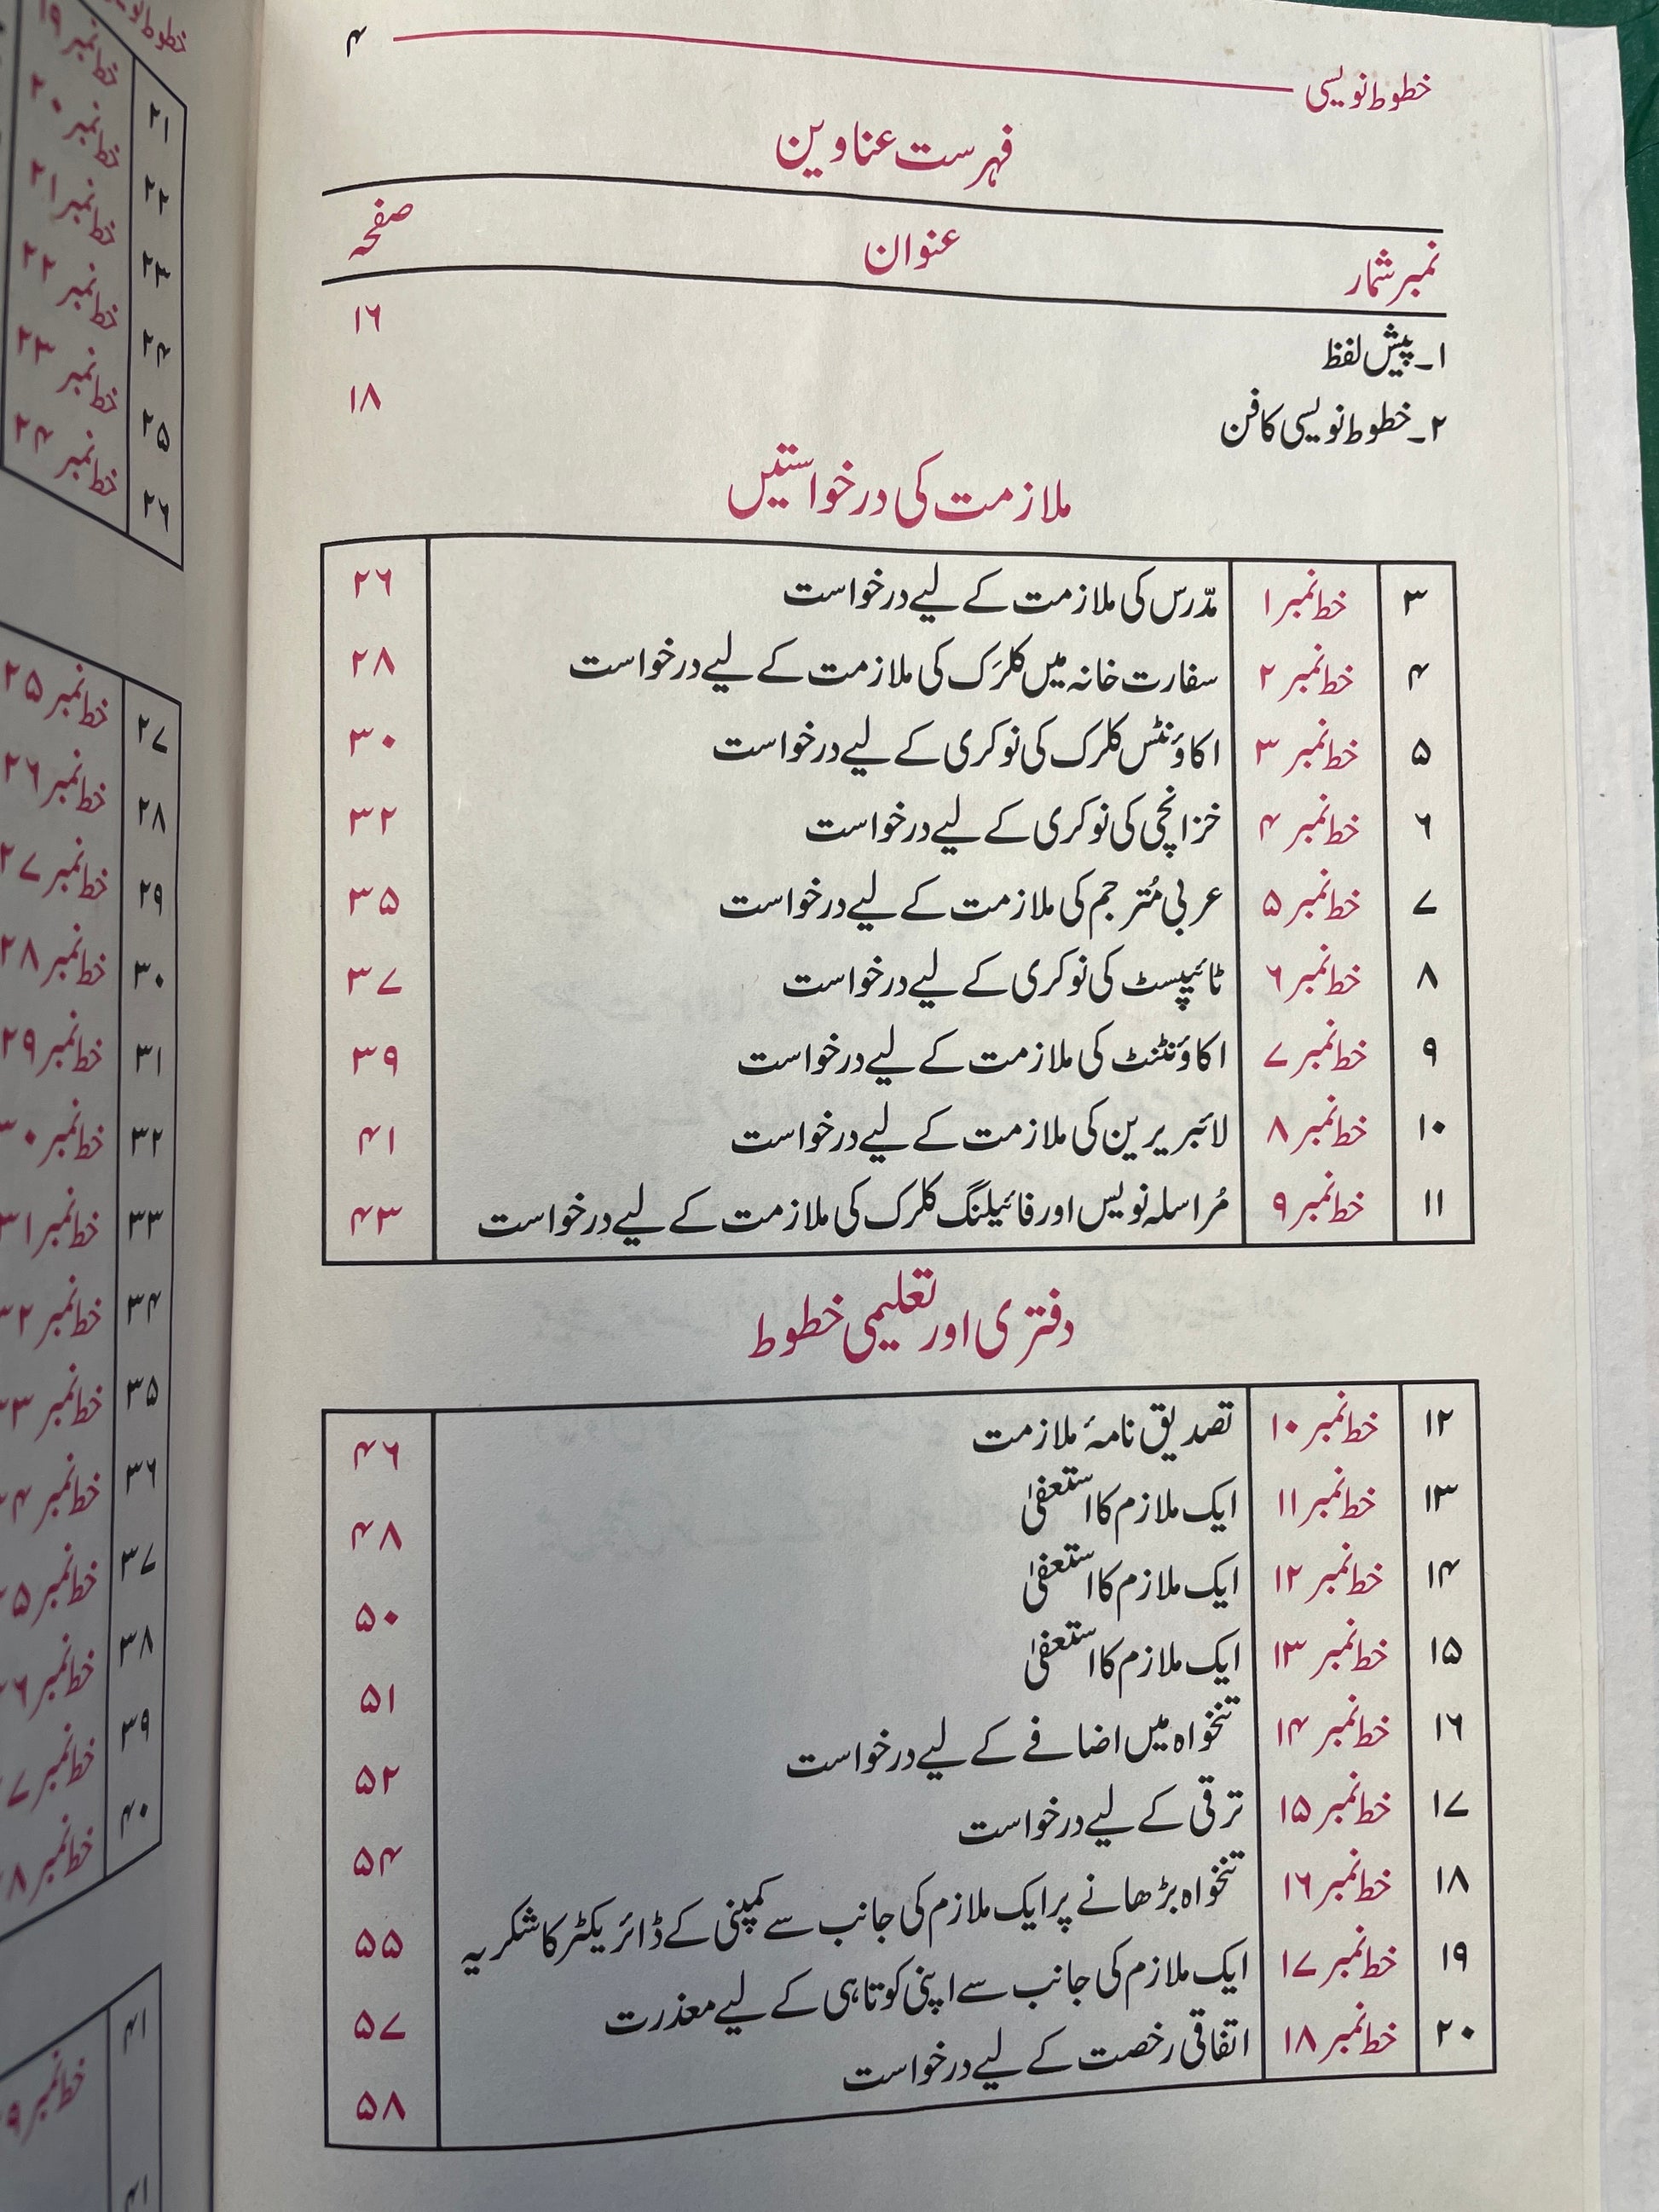 خطوط نویسی ۴
فہرست عناوین
نمبر شمار عنوان صفحہ
۱۔ پیش لفظ ۱۶
۲۔ خطوط نویسی کا فن ۱۸
ملازمت کی درخواستیں
۳ خط نمبر ۱ مدّرس کی ملازمت کے لیے درخواست ۲۶
۴ خط نمبر ۲ سفارت خانہ میں کلرَک کی ملازمت کے لیے درخواست ۲۸
۵ خط نمبر ۳ اکاؤنٹس کلرک کی نوکری کے لیے درخواست ۳۰
۶ خط نمبر ۴ خزانچی کی نوکری کے لیے درخواست ۳۲
۷ خط نمبر ۵ عربی مُترجم کی ملازمت کے لیے درخواست ۳۵
۸ خط نمبر ۶ ٹائیپسٹ کی نوکری کے لیے درخواست ۳۷
۹ خط نمبر ۷ اکاؤنٹنٹ کی ملازمت کے لیے درخواست ۳۹
۱۰ خط نمبر ۸ لائبریرین کی ملازمت کے لیے درخواست ۴۱
۱۱ خط نمبر ۹ مُراسلہ نویس اور فائیلنگ کلرک کی ملازمت کے لیے درخواست ۴۳
دفتری اور تعلیمی خطوط
۱۲ خط نمبر ۱۰ تصدیق نامۂ ملازمت ۴۶
۱۳ خط نمبر ۱۱ ایک ملازم کا استعفیٰ ۴۸
۱۴ خط نمبر ۱۲ ایک ملازم کا استعفیٰ ۵۰
۱۵ خط نمبر ۱۳ ایک ملازم کا استعفیٰ ۵۱
۱۶ خط نمبر ۱۴ تنخواہ میں اضافے کے لیے درخواست ۵۲
۱۷ خط نمبر ۱۵ ترقی کے لیے درخواست ۵۴
۱۸ خط نمبر ۱۶ تنخواہ بڑھانے پر ایک ملازم کی جانب سے کمپنی کے ڈائریکٹر کا شکریہ ۵۵
۱۹ خط نمبر ۱۷ ایک ملازم کی جانب سے اپنی کوتاہی کے لیے معذرت ۵۷
۲۰ خط نمبر ۱۸ اتفاقی رخصت کے لیے درخواست ۵۸
۲۱ خط نمبر ۱۹
۲۲ خط نمبر ۲۰
۲۳ خط نمبر ۲۱
۲۴ خط نمبر ۲۲
۲۵ خط نمبر ۲۳
۲۶ خط نمبر ۲۴
۲۷ خط نمبر ۲۵
۲۸ خط نمبر ۲۶
۲۹ خط نمبر ۲۷
۳۰ خط نمبر ۲۸
۳۱ خط نمبر ۲۹
۳۲ خط نمبر ۳۰
۳۳ خط نمبر ۳۱
۳۴ خط نمبر ۳۲
۳۵ خط نمبر ۳۳
۳۶ خط نمبر
۳۷ خط نمبر
۳۸ خط نمبر
۳۹ خط نمبر
۴۰ خط نمبر
۴۱ خط نمبر